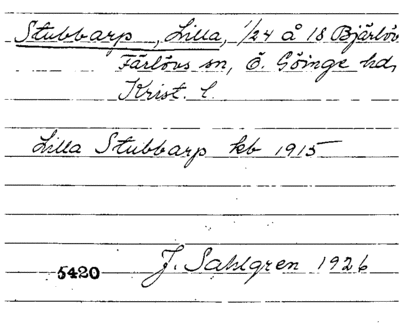 Stubbarp, Lilla, 1/24 å 18 Bjärlöv
Färlövs sn, Ö. Göinge hd,
Krist. l.
Lilla Stubbarp kb 1915
5420 J. Sahlgren 1926